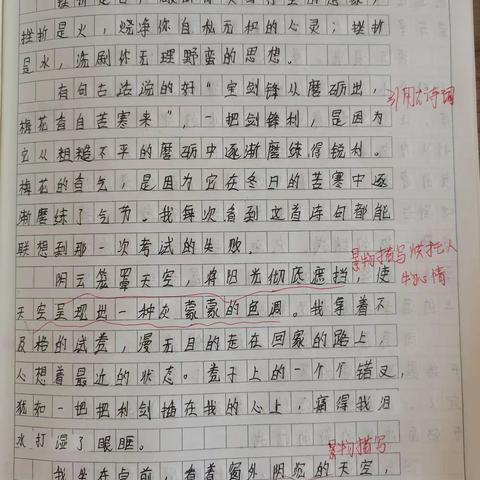 挫折是火，烧净你自私无柷的心灵；挫折
是水，洗刷你无理野蛮的思想。
有句古话说的好"宝剑锋从磨砺出，
梅花香自苦寒来"，一把剑锋利，是因为
它从粗糙不平的磨砺中逐渐磨练得锐利。
梅花的香气，是因为它在冬日的苦寒中逐
渐磨练了气节。我每次看到这首诗句都能
联想到那一次考试的失败。
阴云笼罩天空，将阳光彻底遮挡，使
天空呈现出一种灰蒙蒙的色调。我拿着不
及格的试卷，漫无目的走在回家的路上，
心想着最近的状态。卷子上的一个个错叉，
犹如一把把利剑插在我的心上，痛得我泪
水打湿了眼眶。
我坐在桌前，看着窗外阴沉的天空，
引用古诗词
景物描写烘托人
物心情
景物描写